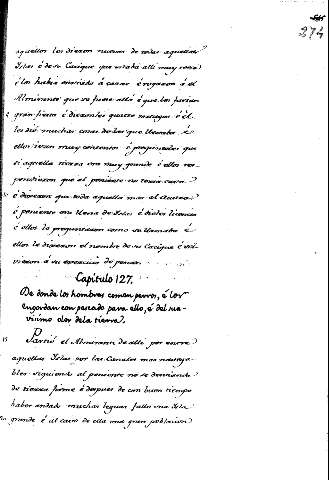 374
aquellos les dieron nuevas de todas aquellas
Islas é de su Cacique que estaba alli muy cerca
é los habia enviado á cazar é rogaron á el
Almirante que se fuese allá é que les farian
gran fiesta é diéronles quatro tortugas é él
les dió muchas cosas de las que llevaba é
ellos iban muy contentos é preguntóles que
si aquella tierra era muy grande é ellos res-
pondieron que al poniente no tenia cabo
é dixeron que toda aquella mar al austro
é poniente era llena de Islas é dióles licencia
é ellos le preguntaron como se llamaba é
ellos le dixeron el nombre de su Cacique é vol-
vieron á su exercicio de pescar.
Capítulo 127.
De donde los hombres comen perros, é los
engordan con pescado para ello, é del sua-
vísimo olor de la tierra.
Partió el Almirante de allí por entre
aquellas Islas por las Canales mas navega-
bles siguiendo al poniente no se desviando
de tierra firme é despues de con buen tiempo
haber andado muchas leguas falló una Isla
grande é al cavo de ella una gran poblacion